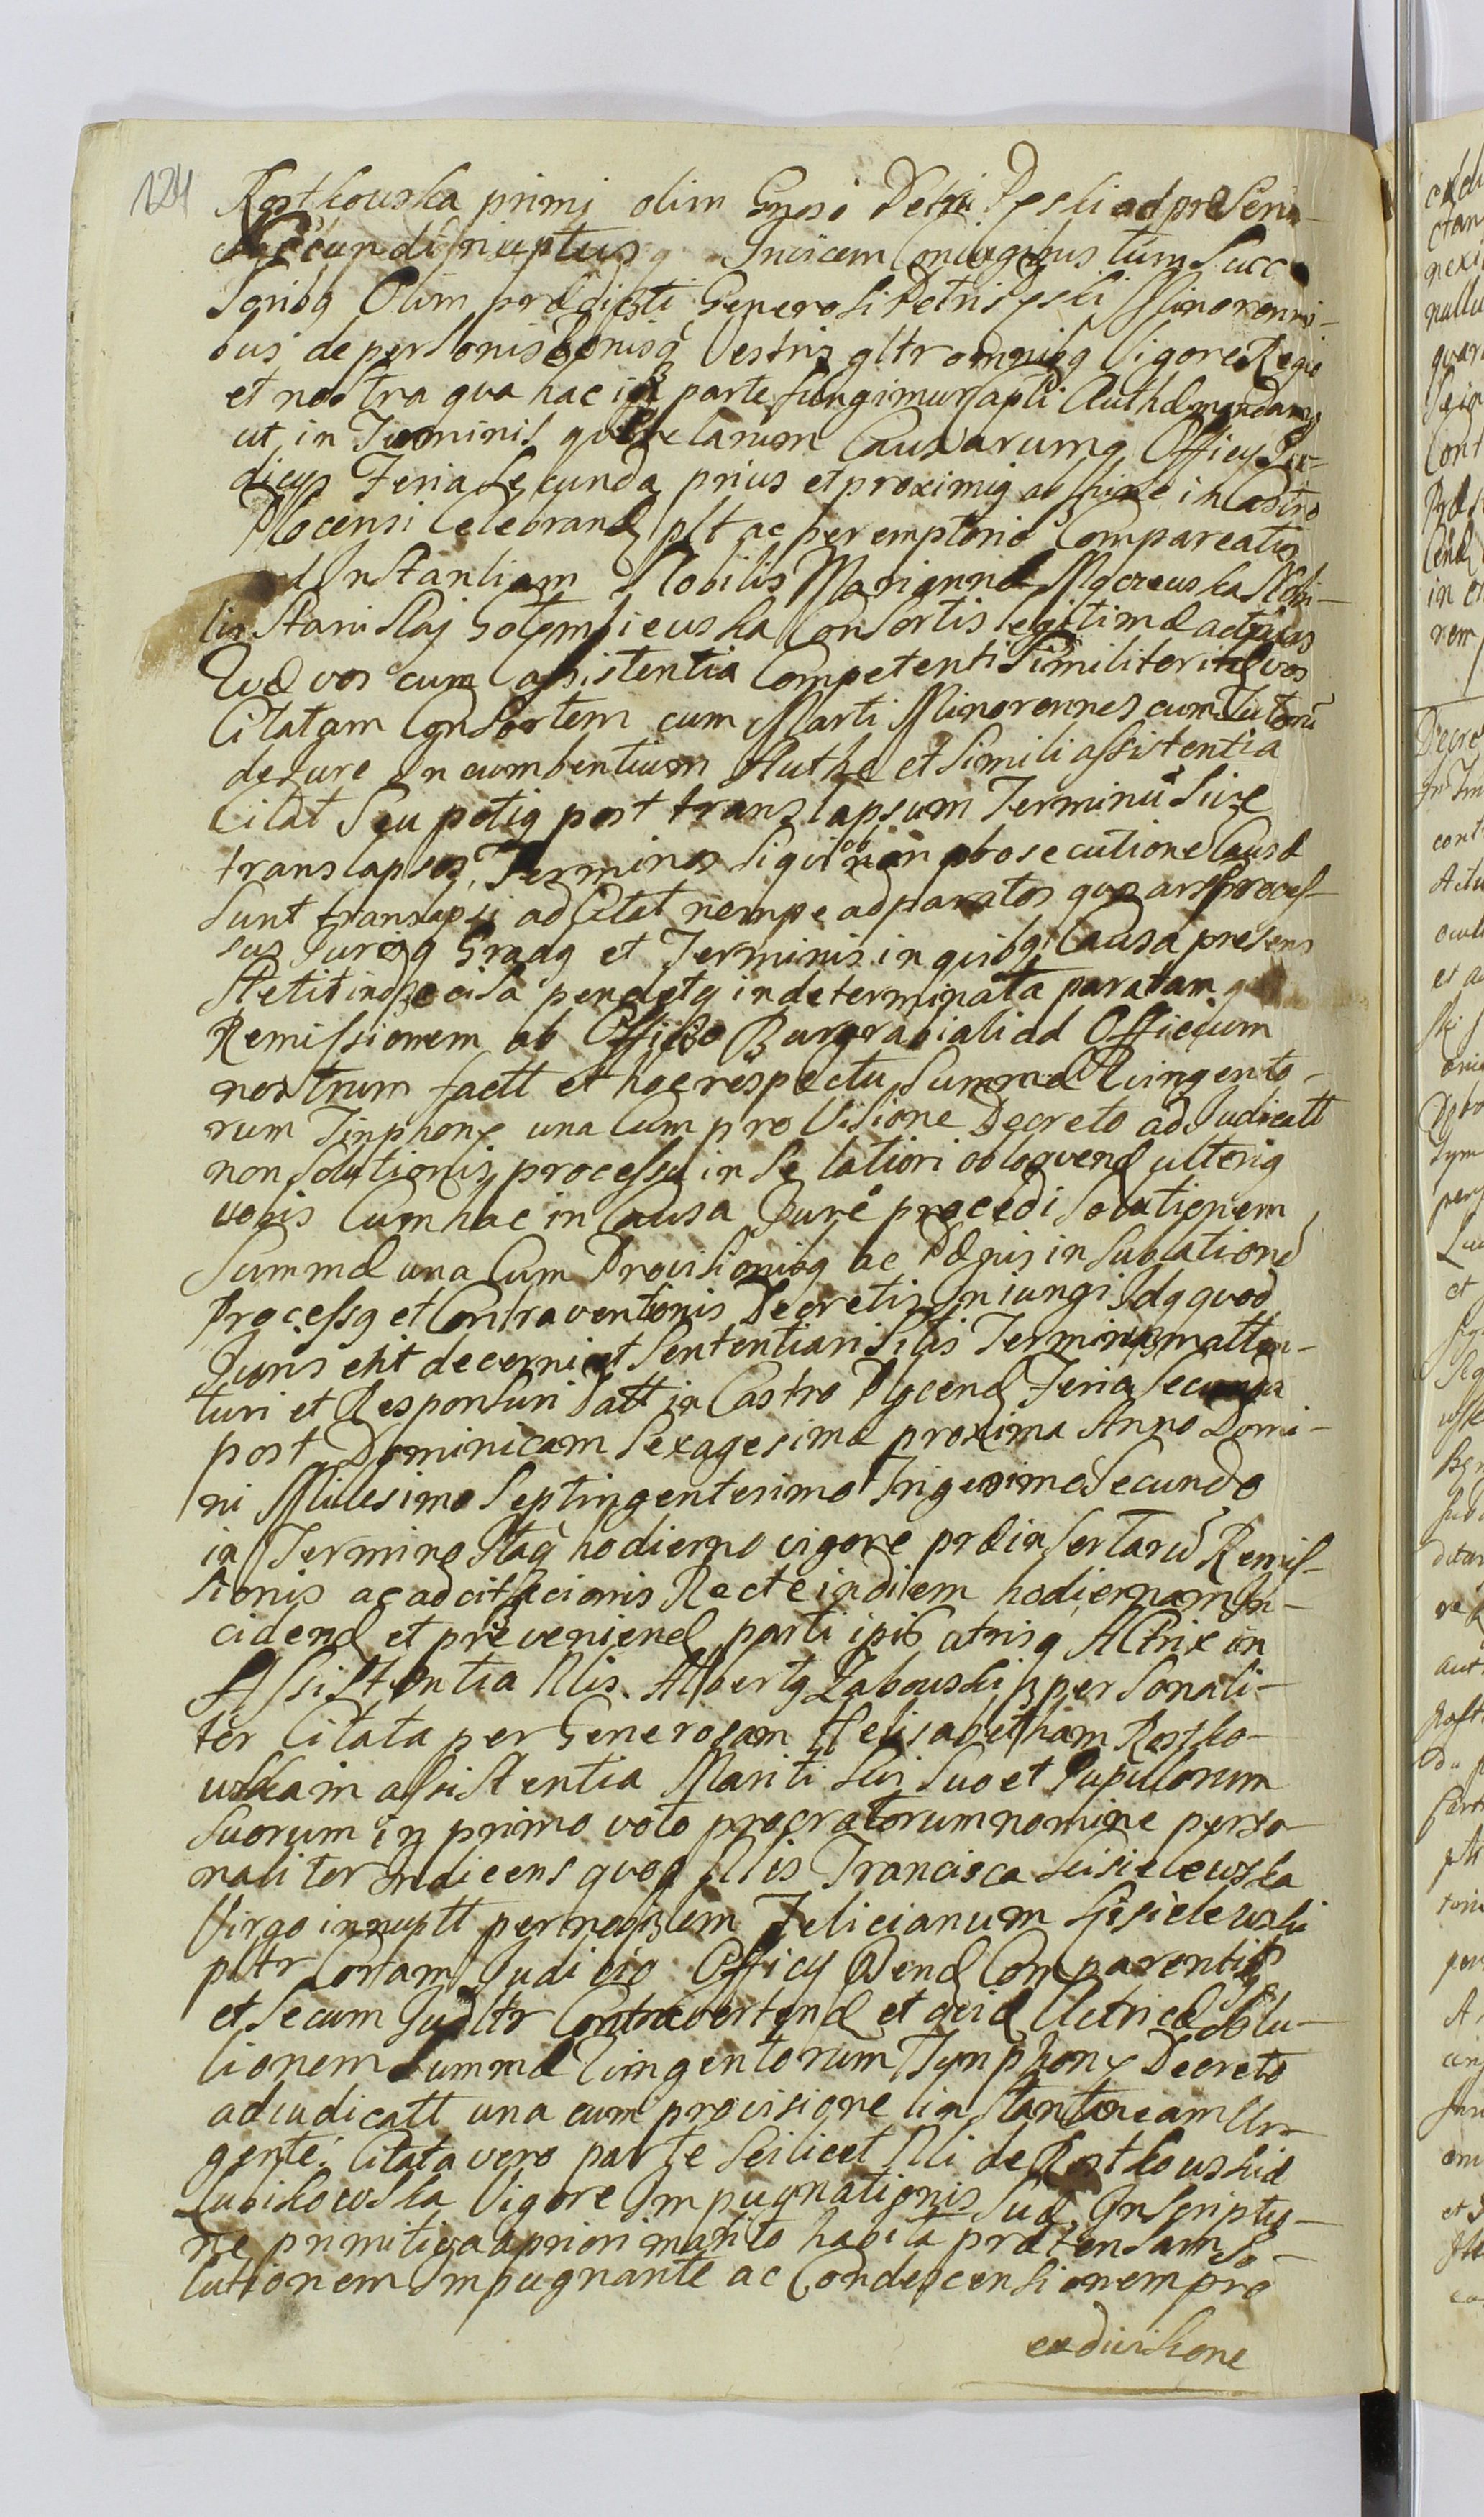 124
Rostkowska primi olim Gnosi Petri Peski ad præsens
Secundi nuptus q Invicem Coniugibus tum Succe
ssoribq Olim prædicti Generosi Petri Peski Minorenni-
bus de personis Bonisq Vestris gltr omnibq Vigore Regia
et nostra qua hac in parte fungimur Capti Authæ mandamq
ut in Terminis querelarum Causarumq Officy Ju-
dicys Feria Secunda prius et proximiq ab hinc in Castro
Plocensi Celebrand plt ac peremptorie Compareatis
ad Instantiam Nobilis Mariannæ Mocreuska Nobi-
lis Stanislai Gotempieuska Consortis legitimæ actricis
Quæ vos cum Assistentia Competenti Similiter itd vos
Citatam Consortem cum Marti Minorennes cum Tutorū
de Jure Incumbentium Authæ et Simili assistentia
Citat Seu potiq post translapsum Terminū Sive
translapsos Terminos Siqui ob non prosecutione Causæ
Sunt translapsi ad Citat nempe ad paratos quos ars proces-
sus Jurisq Gradq et Terminis in quibq Causa presens
Stetit indecisa pendetq indeterminata paratam q
Remissionem ab Officio Burgrabiali ad Officium
nostrum factt et hoc respectu Summæ Quingento-
rum Tinphony una Cum pro Visione Decreto adjudicatt
non Solutionis processu in Se latiori obloquend ulteriq
vobis Cum hac in Causa Jure procedi Solutionem
Summæ una Cum Provisionibq ac Pænis in Sublatione
Processq et Contraventionis Decretis Iniungi Idq quod
Juris erit decerni et Sententiari Sitis Terminum atten-
turi et Responsuri Datt in Castro Plocend Feria Secunda
post Dominicam Sexagesimæ proxima Anno Domi-
ni Millesimo Septingentesimo Trigesimo Secundo
in Termino Itaq hodierno vigore præinsertarū Remis-
sionis ac adcitacionis Recte in diem hodiernam In-
cidend et preveniend parti ipis atrisq Actrix in
Assistentia Nlis Albertq Zabouski personali-
ter Citata per Generosam Helisabetham Rostko-
wskam assistentia Mariti Sui Suo et Pupillorum
Suorum in primo voto procratorum nomine perso-
naliter Indicens quoq Nlis Francisca Leisielewska
Virgo innuptt per nobilem Felicianum Gisielewski
pltr Coram Judicio Officy Dend Comparentibs
et Secum Judltr Controvertend et quid Actricæ Solu-
tionem Summæ Quingentorum Tynphony Decreto
adiudicatt una cum provisione instanter eam Ur-
gente Citata vero parte Scilicet Nli de Rostkowskie
Lubikowska Vigore Impugnationis Suæ Inscriptio-
ne primitiqa apriori marito habita prætensam So-
lutionem Impugnante ac Condescensionem pro
exdivisione